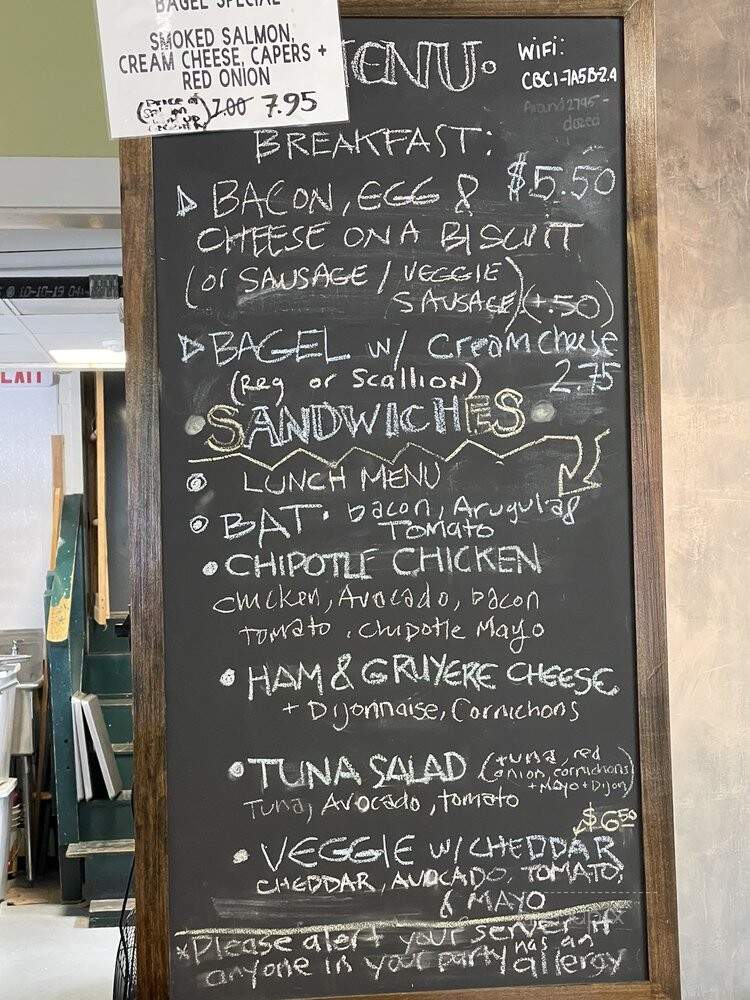 BAGEL SPECIAL
SMOKED SALMON,
CREAM CHEESE, CAPERS +
RED ONION
(Price of
Salmon
7.00 7.95
MENU.
WiFi:
CBCI-7A5B-2.4
BREAKFAST:
BACON, EGG & $5.50
CHEESE ON A BISCUIT
(or SAUSAGE / VEGGIE
SAUSAGE) (+.50)
BAGEL w/ Cream cheese
(Reg or Scallion) 2.75
SANDWICHES
LUNCH MENU
BAT. bacon, Arugula &
Tomato
CHIPOTLE CHICKEN
chicken, Avocado, bacon
tomato, chipotle Mayo
HAM & GRUYERE CHEESE
+ Dijonnaise, Cornichons
TUNA SALAD (tuna, red
onion, cornichons
+ Mayo + Dijon)
Tuna, Avocado, tomato
$6.50
VEGGIE W/ CHEDDAR
CHEDDAR, AVOCADO, TOMATO,
& MAYO
*Please alert your server if
anyone in your party has an
allergy
10-10-19 04: